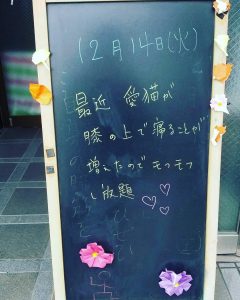 12月14日(火)
最近 愛猫が
膝の上で寝ることが
増えたのでモフモフ
し放題